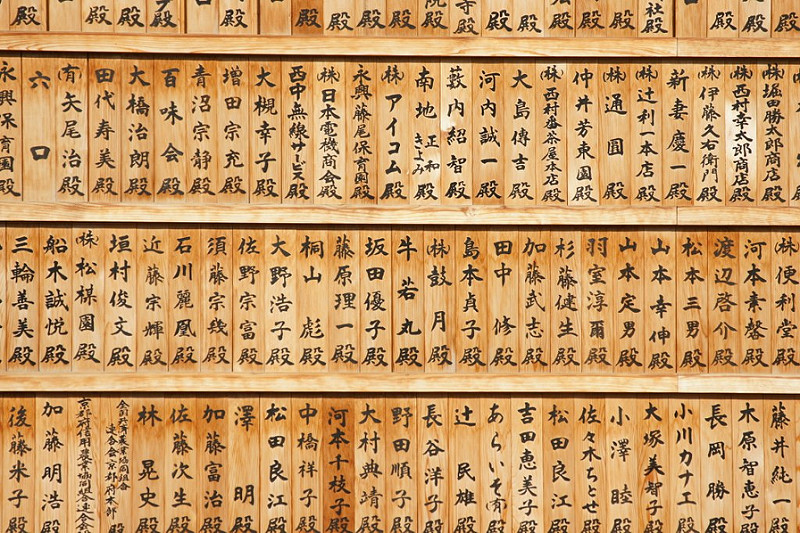 殿
殿
殿
社殿
殿
殿
殿
殿
寺殿
院殿
殿
殿
殿
殿
殿
殿
殿
殿
殿
殿
殿
㈱堀田勝太郎商店殿
㈱西村幸太郎商店殿
㈱伊藤久右衛門殿
新妻慶一殿
㈱辻利一本店殿
㈱通圓殿
仲井芳東園殿
㈱西村番茶屋本店殿
大島傳吉殿
河内誠一殿
藪内紹智殿
南地正和きよみ殿
㈱アイコム殿
永興藤尾保育園殿
㈱日本電機商会殿
西中無線サービス殿
大槻幸子殿
増田宗充殿
青沼宗静殿
百味会殿
大橋治朗殿
田代寿美殿
㈲矢尾治殿
六口
永興保育園殿
㈱便利堂殿
河本素馨殿
渡辺啓介殿
松本三男殿
山本幸伸殿
山本定男殿
羽室淳爾殿
杉藤健生殿
加藤武志殿
田中修殿
島本貞子殿
㈱鼓月殿
牛若丸殿
坂田優子殿
藤原理一殿
桐山彪殿
大野浩子殿
佐野宗富殿
須藤宗幾殿
石川麗凰殿
近藤宗輝殿
垣村俊文殿
㈱松楳園殿
船木誠悦殿
三輪善美殿
藤井純一殿
木原智恵子殿
長岡勝殿
小川カナエ殿
大塚美智子殿
小澤睦殿
佐々木ちとせ殿
松田良江殿
吉田恵美子殿
あらいそ㈲殿
辻民雄殿
長谷洋子殿
野田順子殿
大村典靖殿
河本千枝子殿
中橋祥子殿
松田良江殿
澤明殿
加藤富治殿
佐藤次生殿
林晃史殿
全国共済農業協同組合
連合会京都府本部
京都府信用農業協同組合連合会
加藤明浩殿
後藤米子殿